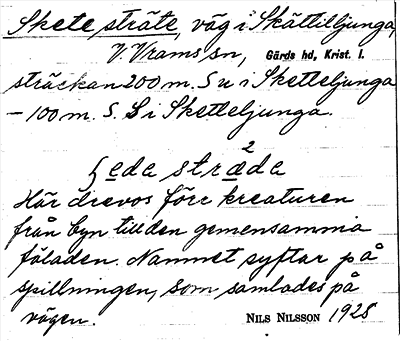 Skete sträte, väg i Skättilljunga,
V. Vrams sn, Gärds hd, Krist. l.
sträckan 200 m. S u i Sketteljunga
– 100 m. S. S i Sketteljunga.
ʃeda stræ2da
Här drevos förr kreaturen
från byn till den gemensamma
fäladen. Namnet syftar på
spillningen, som samlades på
vägen. NILS NILSSON 1928